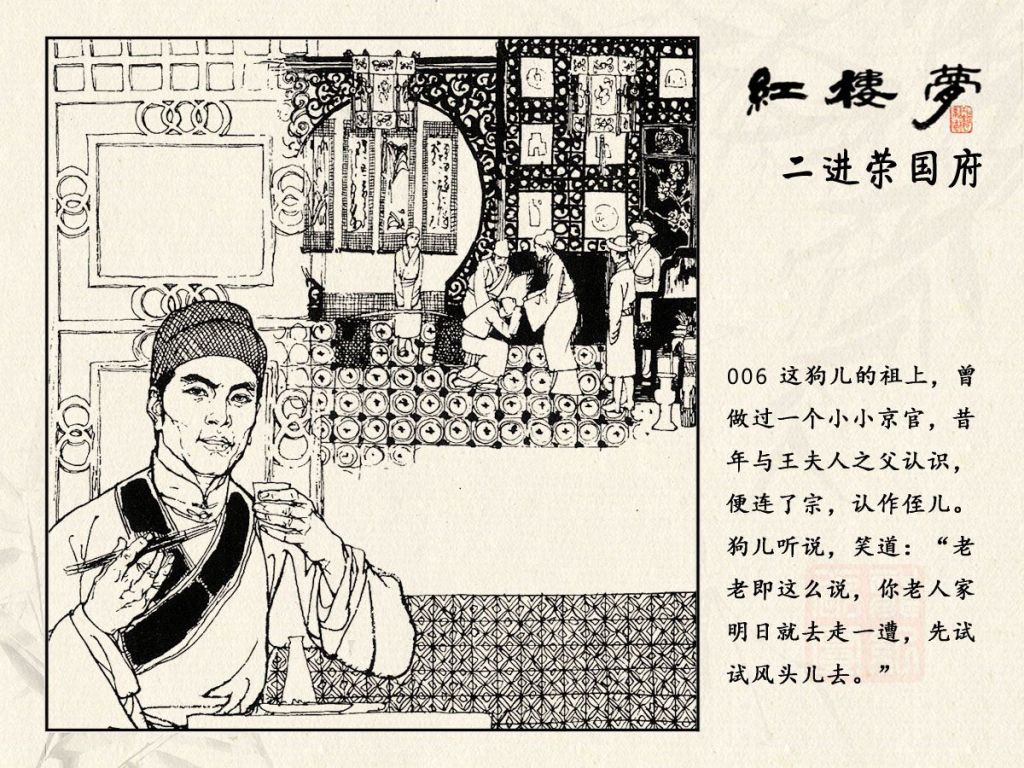 紅樓夢
二进荣国府
006 这狗儿的祖上，曾
做过一个小小京官，昔
年与王夫人之父认识，
便连了宗，认作侄儿。
狗儿听说，笑道：“老
老即这么说，你老人家
明日就去走一遭，先试
试风头儿去。”